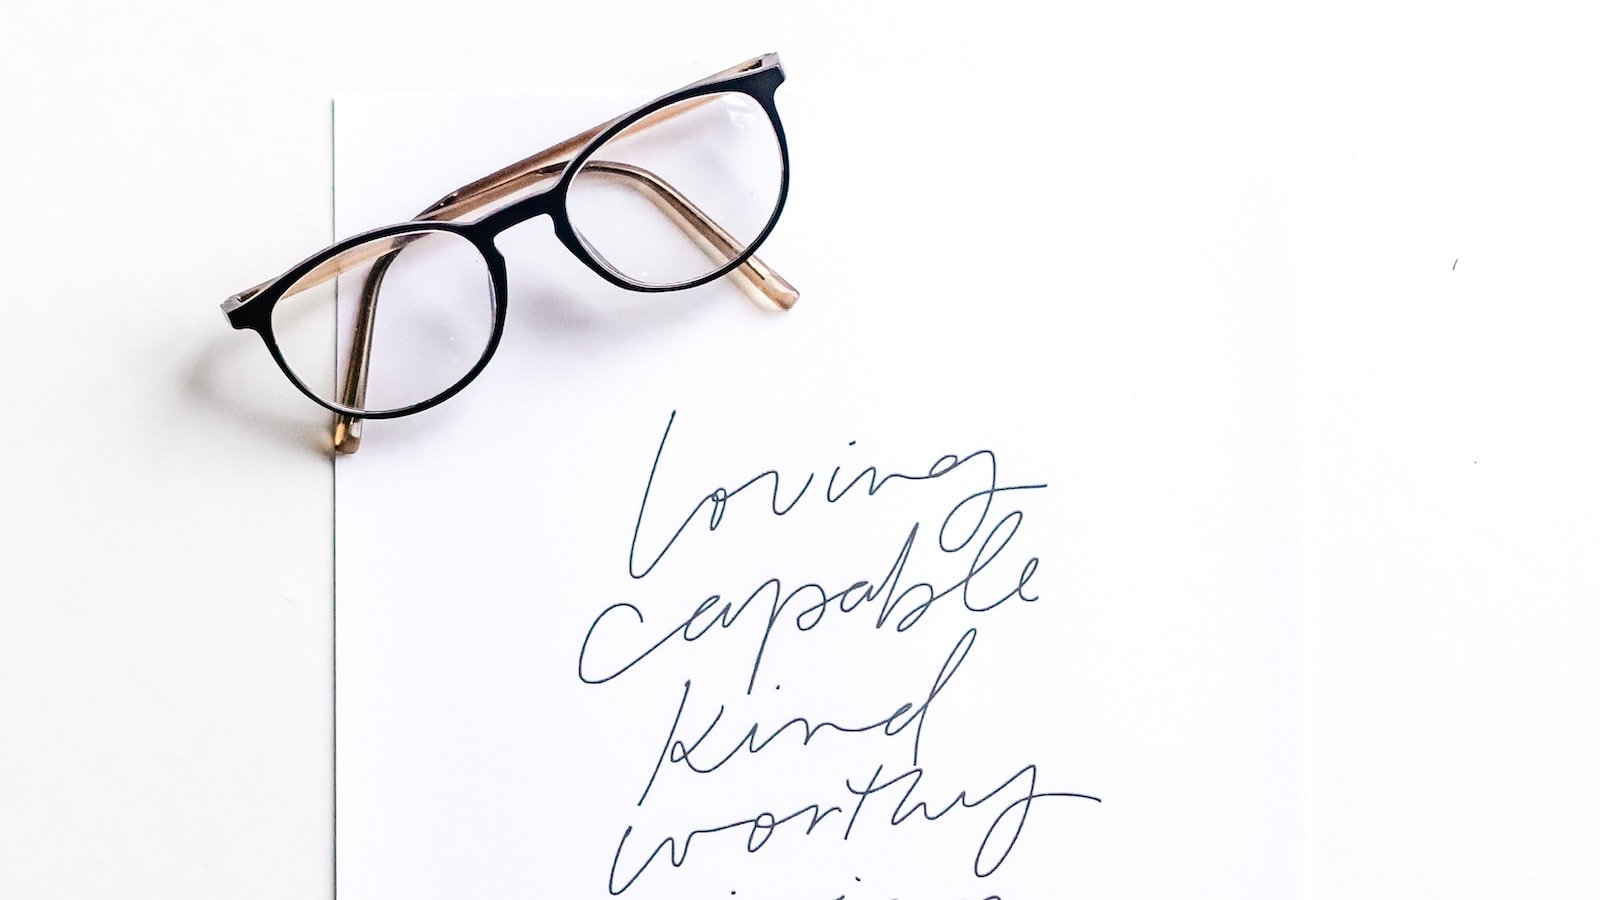 loving
capable
kind
worthy